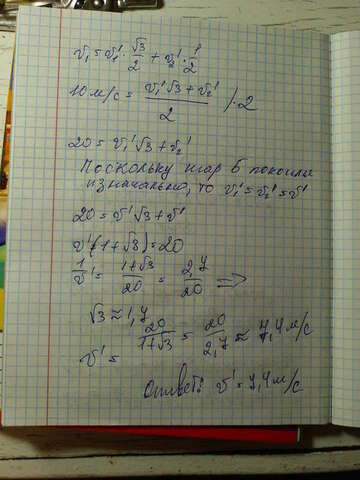 v₁ = v₁' · √3/2 + v₂' · 1/2
10 м/с = (v₁'√3 + v₂')/2 / · 2
20 = v₁'√3 + v₂'
Поскольку шар Б покоился
изначально, то v₁' = v₂' = v'
20 = v'√3 + v'
v'(1+√3) = 20
1/v' = (1+√3)/20 = 2,7/20 ⇒
√3 ≈ 1,7
v' = 20/(1+√3) = 20/2,7 ≈ 7,4 м/с
Ответ: v' = 7,4 м/с